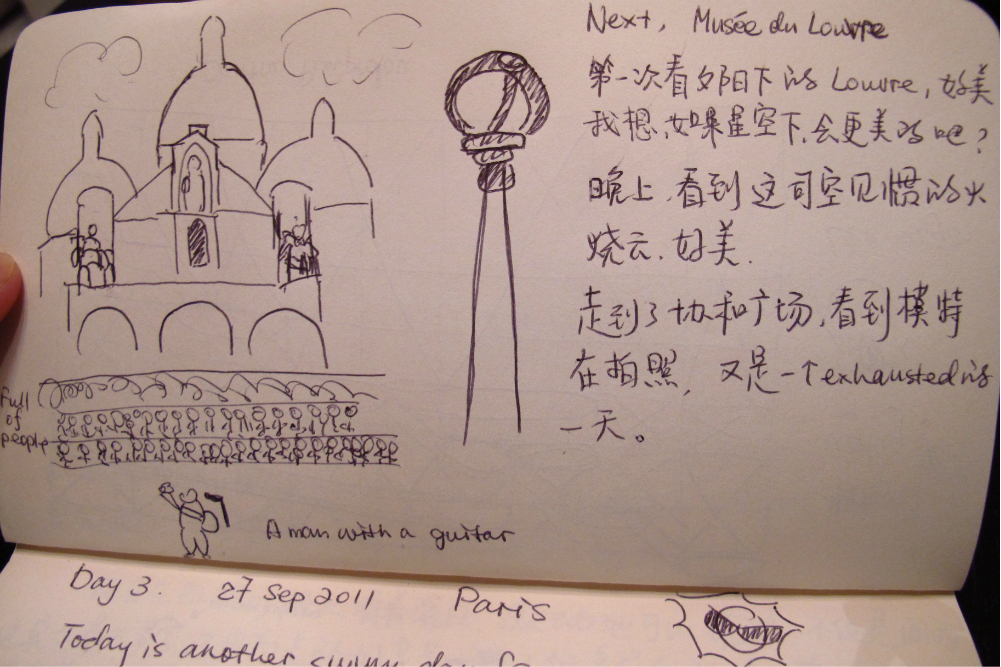 Next, Musée du Louvre
第一次看夕阳下的 Louvre, 好美
我想,如果星空下,会更美的吧?
晚上,看到这司空见惯的火
烧云,好美.
走到了协和广场,看到模特
在拍照,又是一个exhausted的
一天。
full
of
people
A man with a guitar
Day 3. 27 Sep 2011 Paris
Today is another sunny day